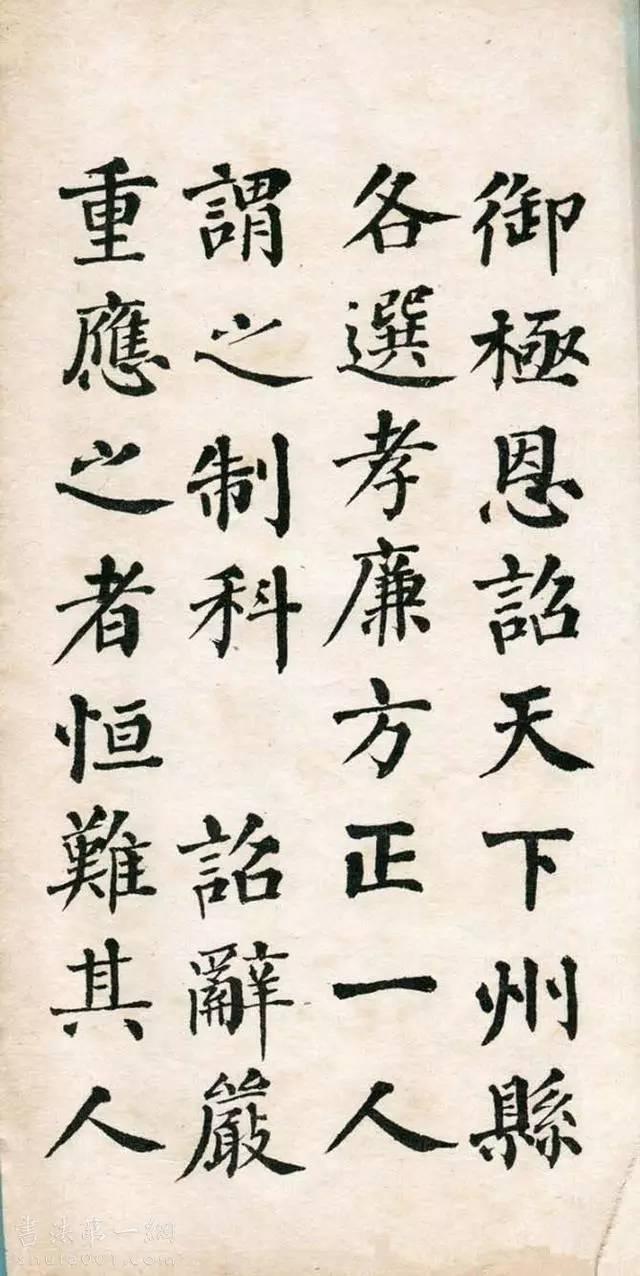 御極恩詔天下州縣
各選孝廉方正一人
謂之制科　詔辭嚴
重應之者恒難其人
書法第一網
shufa001.com